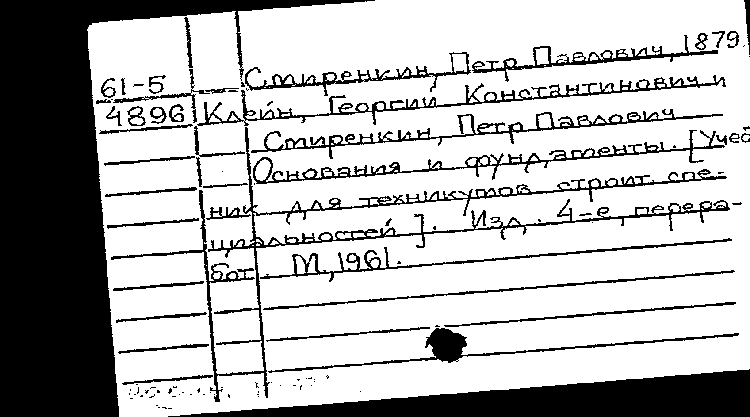 Смиренкин, Петр Павлович, 1879
61-5
4896 Клейн, Георгий Константинович и
Смиренкин, Петр Павлович
Основания и фундаменты. [Учеб
ник для техникумов строит. спе-
циальностей]. Изд. 4-е, перера-
бот. М., 1961.